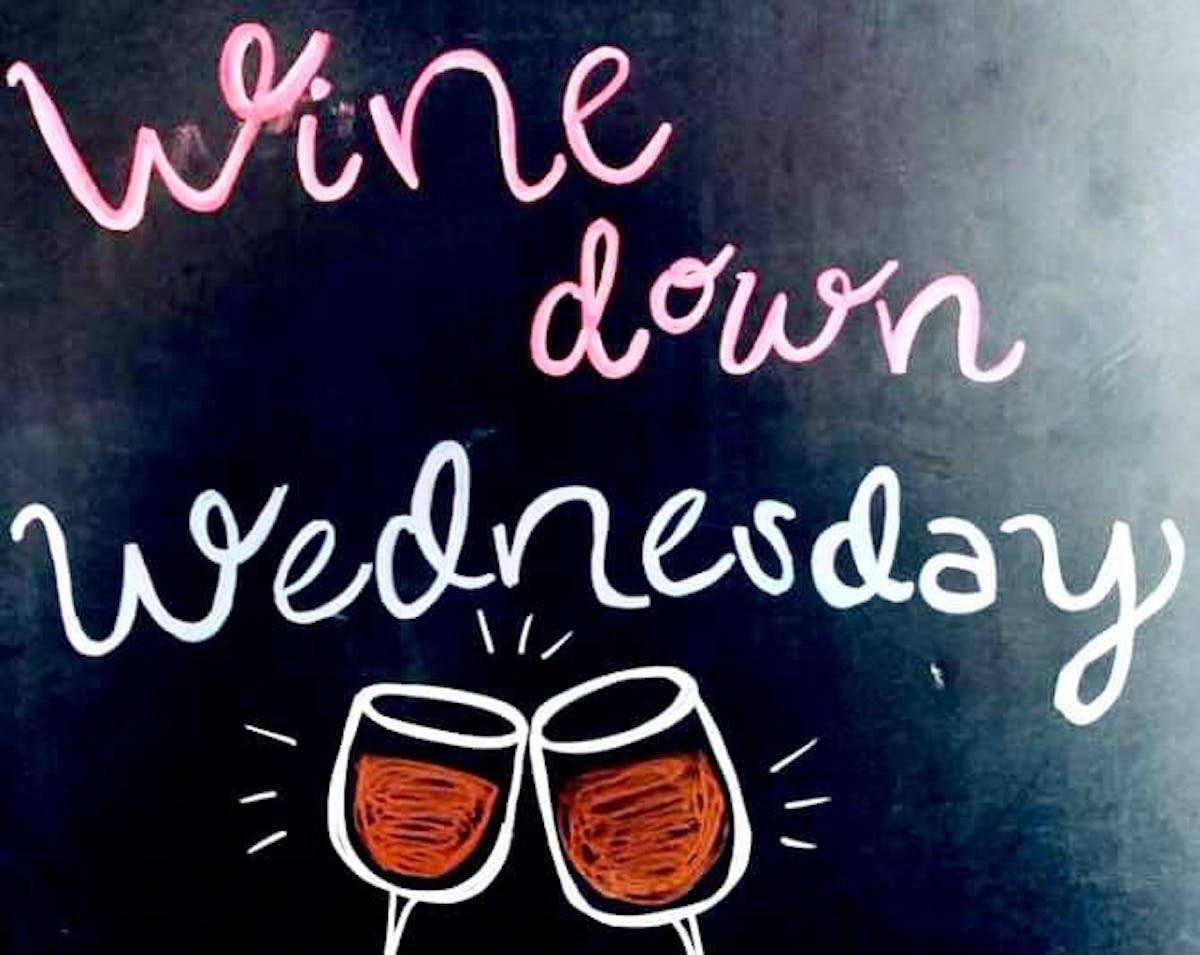 Wine
down
Wednesday